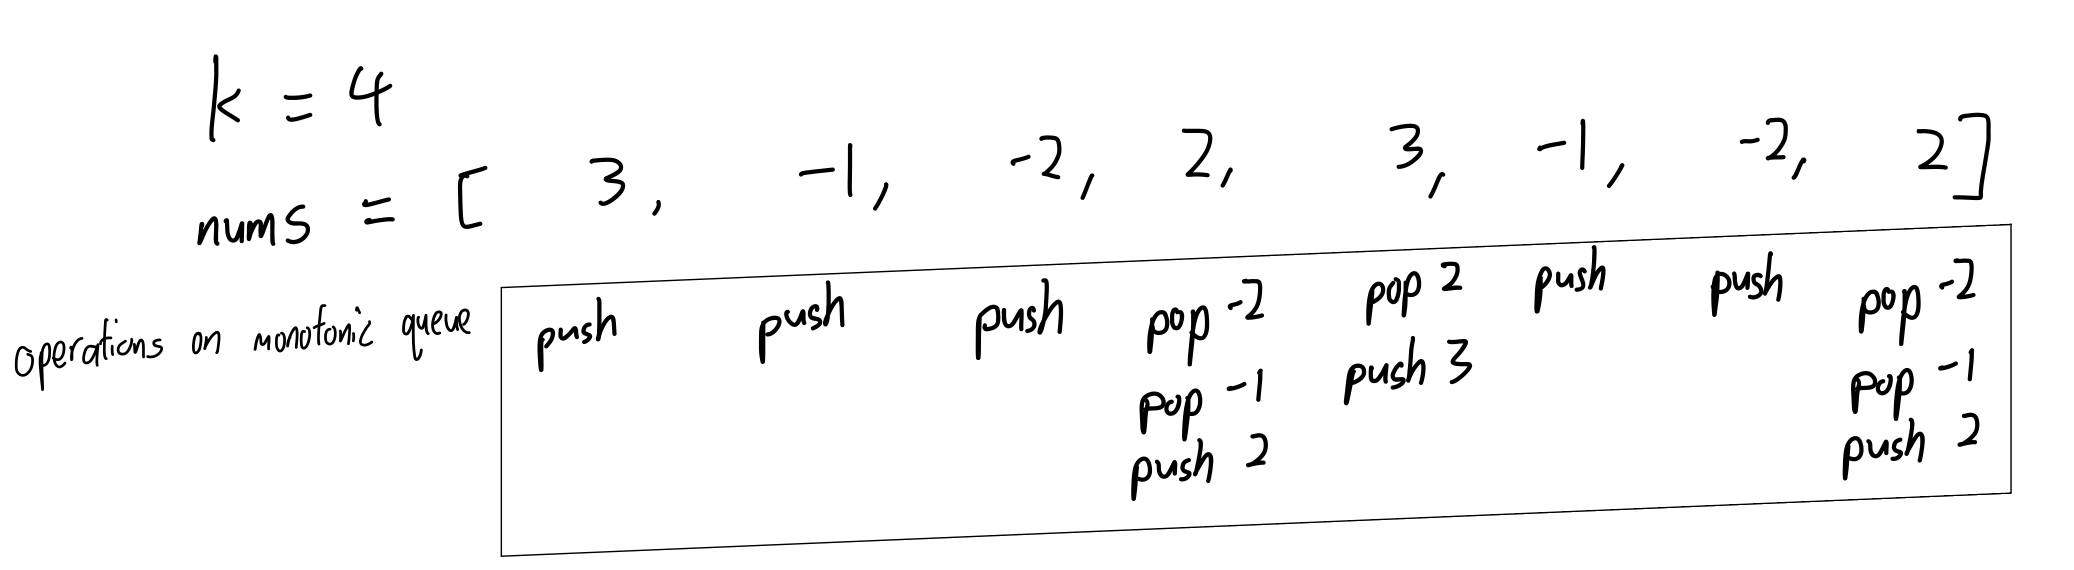 k = 4
nums = [ 3, -1, -2, 2, 3, -1, -2, 2]
operations on monotonic queue
push push push pop -2 pop 2 push push pop -2
pop -1 push 3 pop -1
push 2 push 2